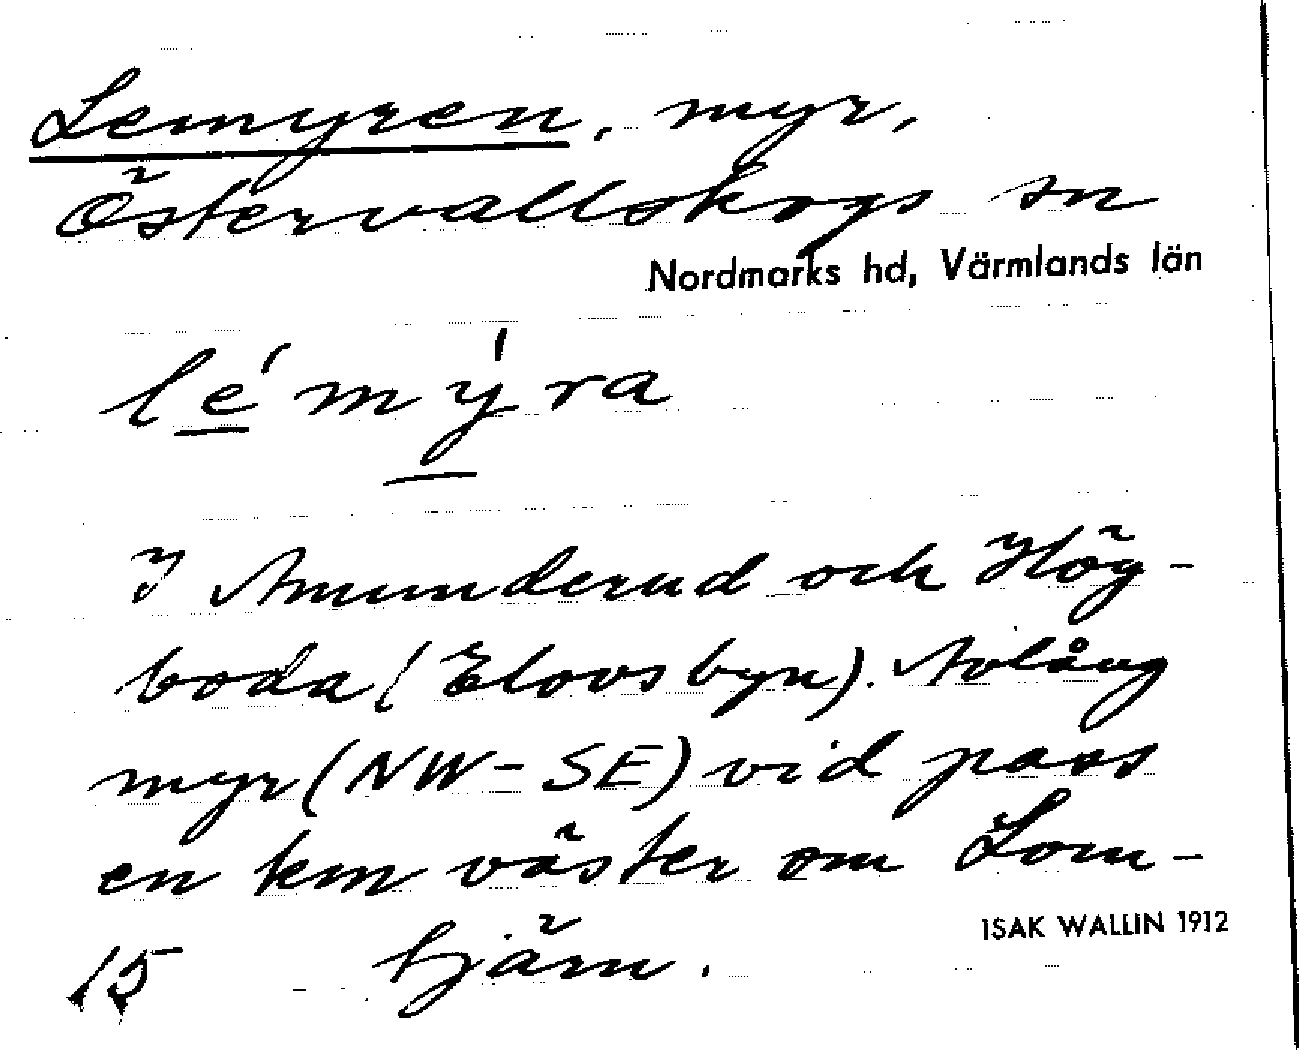 Lemyren, myr,
Östervallskogs sn
Nordmarks hd, Värmlands län
lé mý ra
I Amunderud och Hög-
boda (Elovsbyn). Avlång
myr (NW-SE) vid pass
en km väster om Lom-
tjärn.
ISAK WALLIN 1912
15